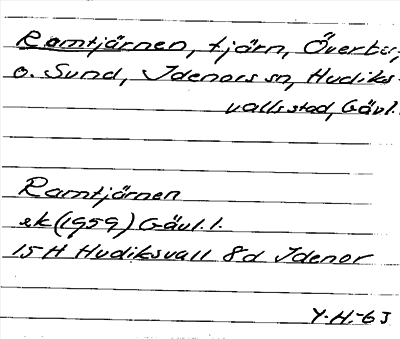 Ramtjärnen, tjärn, Överbyn,
o. Sund, Idenors sn, Hudiks-
valls stad, Gävl.
Ramtjärnen
ek (1959) Gävl. l.
15 H Hudiksvall 8d Idenor
Y.H.-63